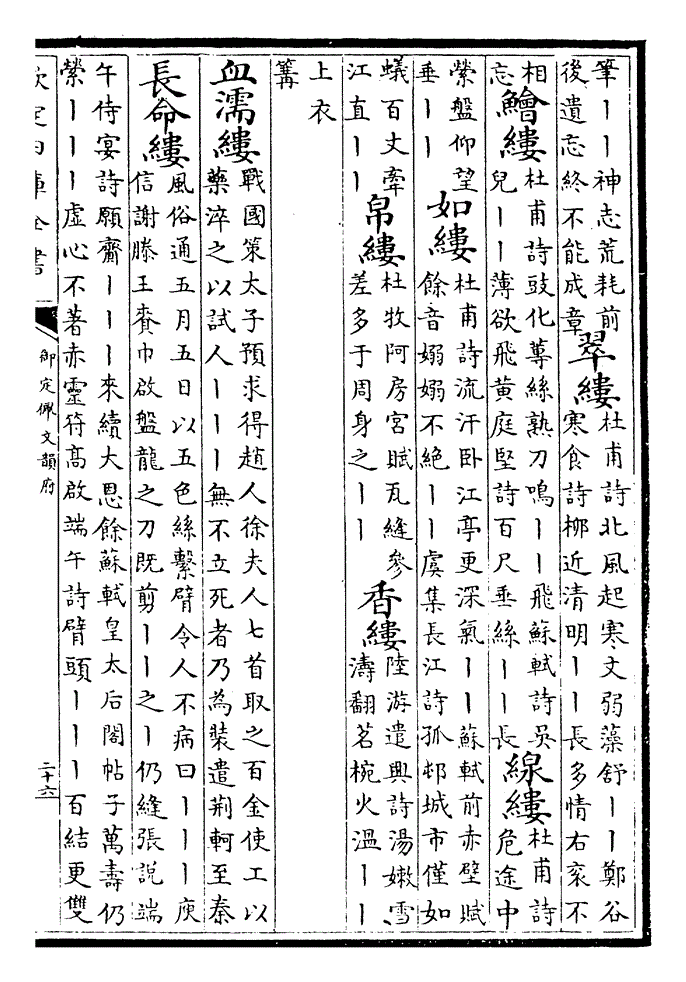 筆丨丨神志荒耗前
後遺忘終不能成章
翠縷
杜甫詩北風起寒文弱藻舒丨丨鄭谷
寒食詩栁近清明丨丨長多情右衮不
相
忘
鱠縷
杜甫詩豉化蓴絲熟刀鳴丨丨飛蘇軾詩吳
兒丨丨薄欲飛黄庭堅詩百尺垂絲丨丨長
線縷
杜甫詩
危途中
縈盤仰望
垂丨丨
如縷
杜甫詩流汗卧江亭更深氣丨丨蘇軾前赤壁賦
餘音嫋嫋不絶丨丨虞集長江詩孤邨城市僅如
蟻百丈牽
江直丨丨
帛縷
杜牧阿房宫賦瓦縫參
差多于周身之丨丨
香縷
陸游遣興詩湯嫩雪
濤翻茗椀火温丨丨
上衣
篝
血濡縷
戰國策太子預求得趙人徐夫人七首取之百金使工以
藥淬之以試人丨丨丨無不立死者乃為裝遣荆軻至秦
長命縷
風俗通五月五日以五色絲繫臂令人不病曰丨丨丨庾
信謝滕王賚巾啟盤龍之刀既剪丨丨之丨仍縫張說端
午侍宴詩願齎丨丨丨來續大恩餘蘇軾皇太后閣帖子萬壽仍
縈丨丨丨虛心不著赤靈符高啟端午詩臂頭丨丨丨百結更雙
欽定四庫全書
御定佩文韻府
二十六